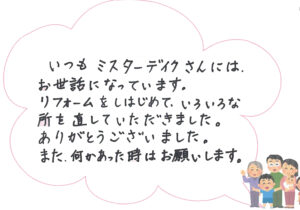 いつも ミスターデイクさんには、
お世話になっています。
リフォームをしはじめて、いろいろな
所を直していただきました。
ありがとうございました。
また、何かあった時はお願いします。